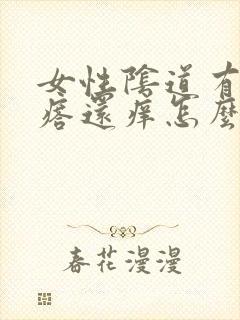 女性陰道有
痦還痒怎麼
春花漫漫